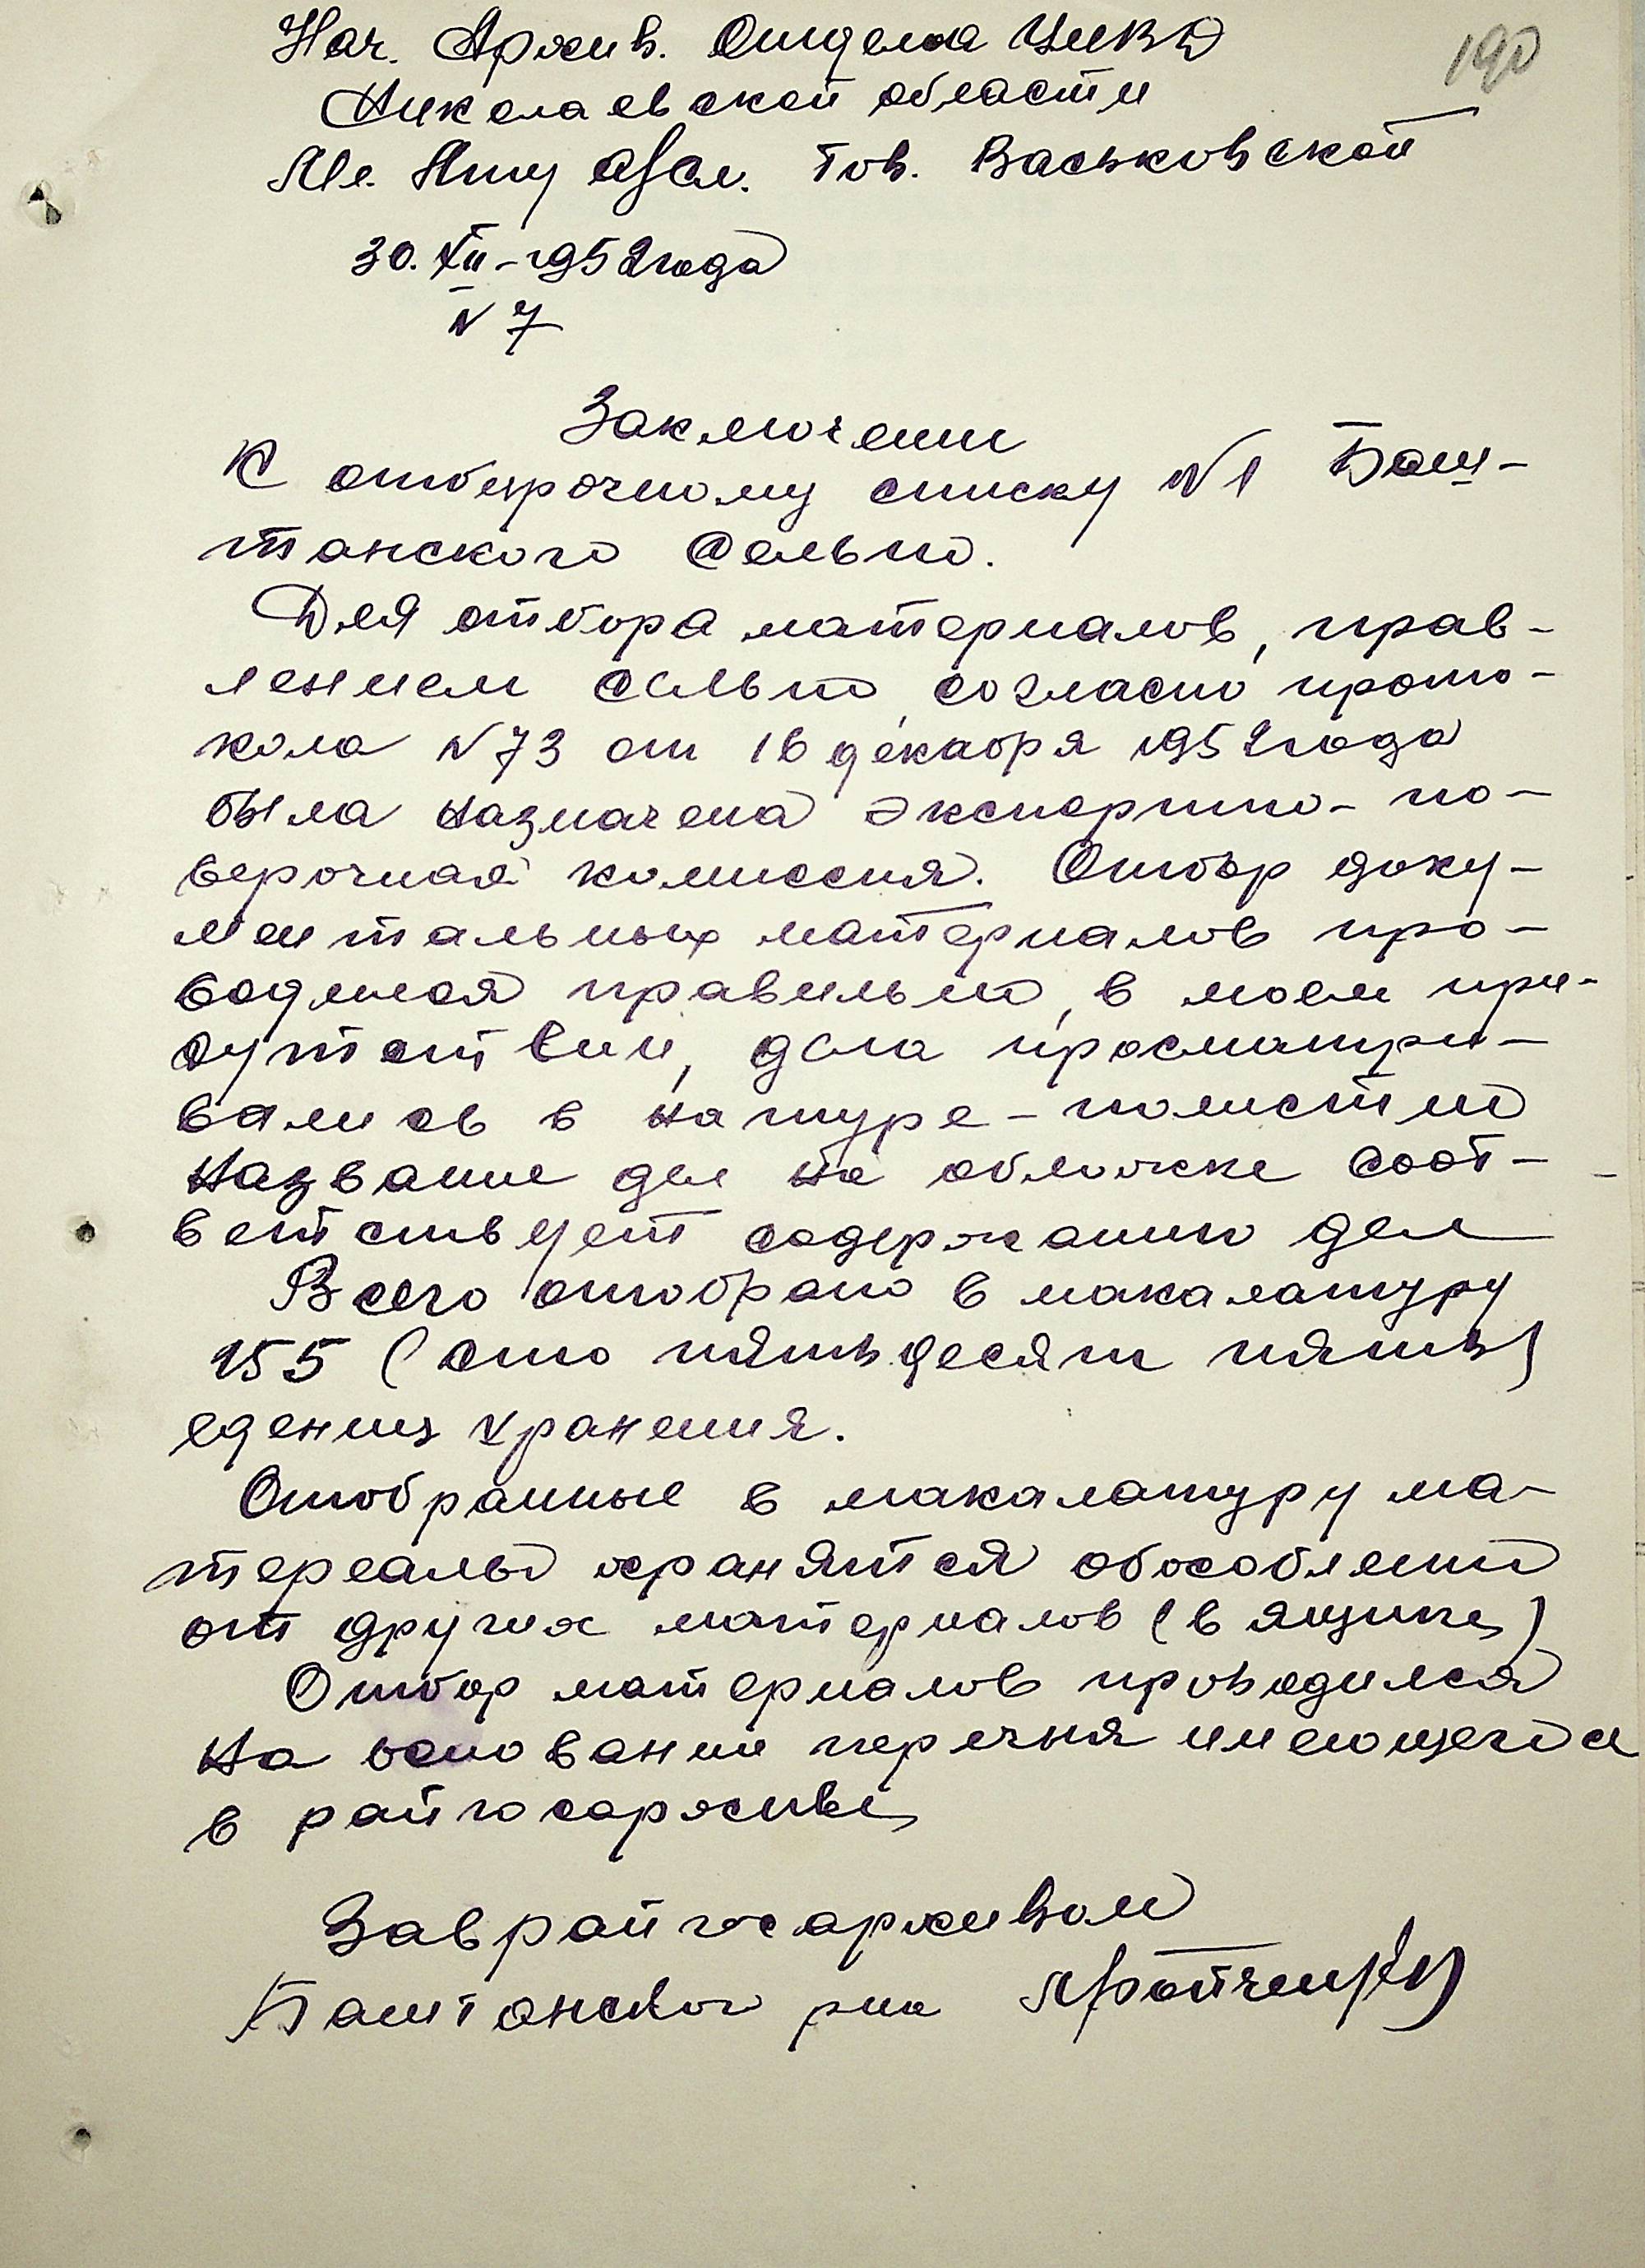 190
Нач. Архив. Отдела УМВД
Николаевской области
Мл. Лту. Тов. Васьковской
30. XII – 1952 года
N 7
Заключении
К отборочному списку N 1 Баш-
танского Сельпо.
Для отбора материалов, прав-
лением сельпо, согласно прото-
кола N 73 от 16 декабря 1952 года
была назначена экспертно- по-
верочная комиссия. Отбор доку-
ментальных материалов про-
водился правильно, в моем при-
сутствии, дела просматри-
вались в натуре – полистно
Название дел на обложке соот-
ветствует содержанию дел
Всего отобрано в макалатуру
155 (сто пятьдесят пять)
едениц хранения.
Отобранные в макалатуру ма-
тереалы хранятся обособленно
от других материалов (в ящике)
Отбор материалов проводился
на основании перечня имеющегося
в райгосархиве
Зав райгосархивом
Баштанского р-на